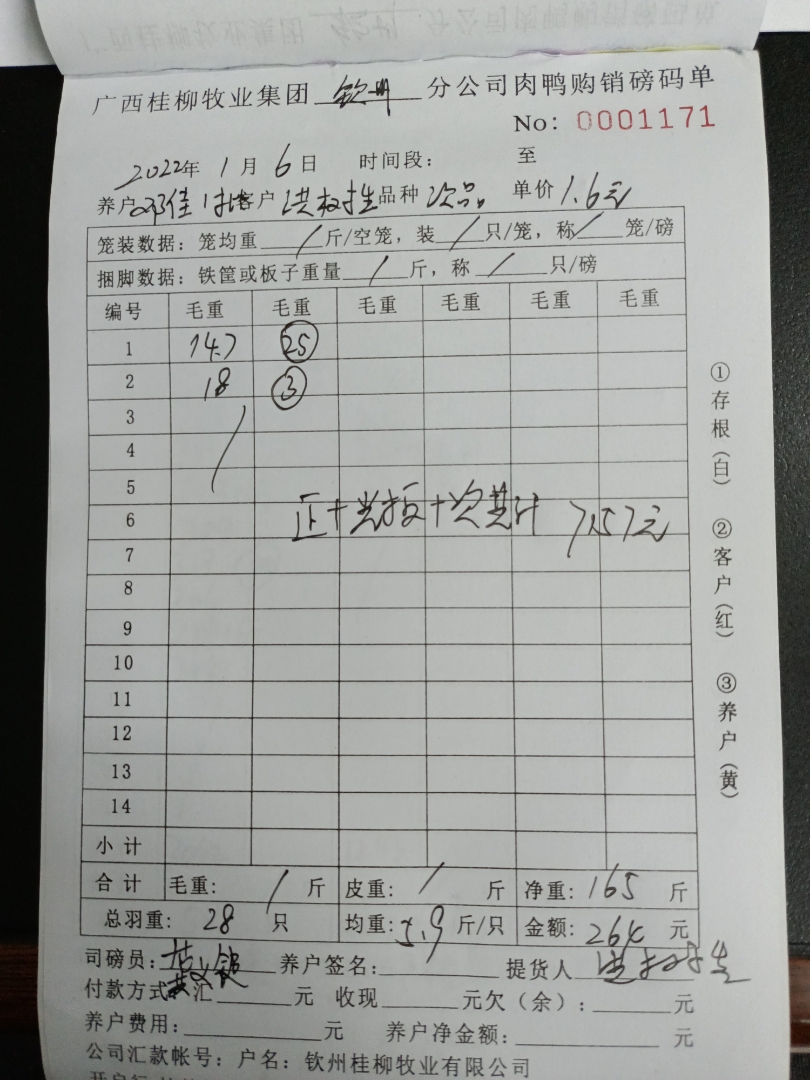 广西桂柳牧业集团 钦州 分公司肉鸭购销磅码单
No: 0001171
2022年 1 月 6 日 时间段: 至
养户 邓佳 客户 洪 生 品种 次品 单价 1.6元
笼装数据: 笼均重 / 斤/空笼, 装 / 只/笼, 称 / 笼/磅
捆脚数据: 铁筐或板子重量 / 斤, 称 / 只/磅
编号 毛重 毛重 毛重 毛重 毛重 毛重
1 147 25
2 18 3
3
4
5
6 正+光板+次共计 7157元
7
8
9
10
11
12
13
14
小计
合计 毛重: / 斤 皮重: / 斤 净重: 165 斤
总羽重: 28 只 均重: 5.9 斤/只 金额: 264 元
司磅员: 养户签名: 提货人
付款方式: 汇 元 收现 元欠(余): 元
养户费用: 元 养户净金额: 元
公司汇款帐号: 户名: 钦州桂柳牧业有限公司
①存根(白) ②客户(红) ③养户(黄)